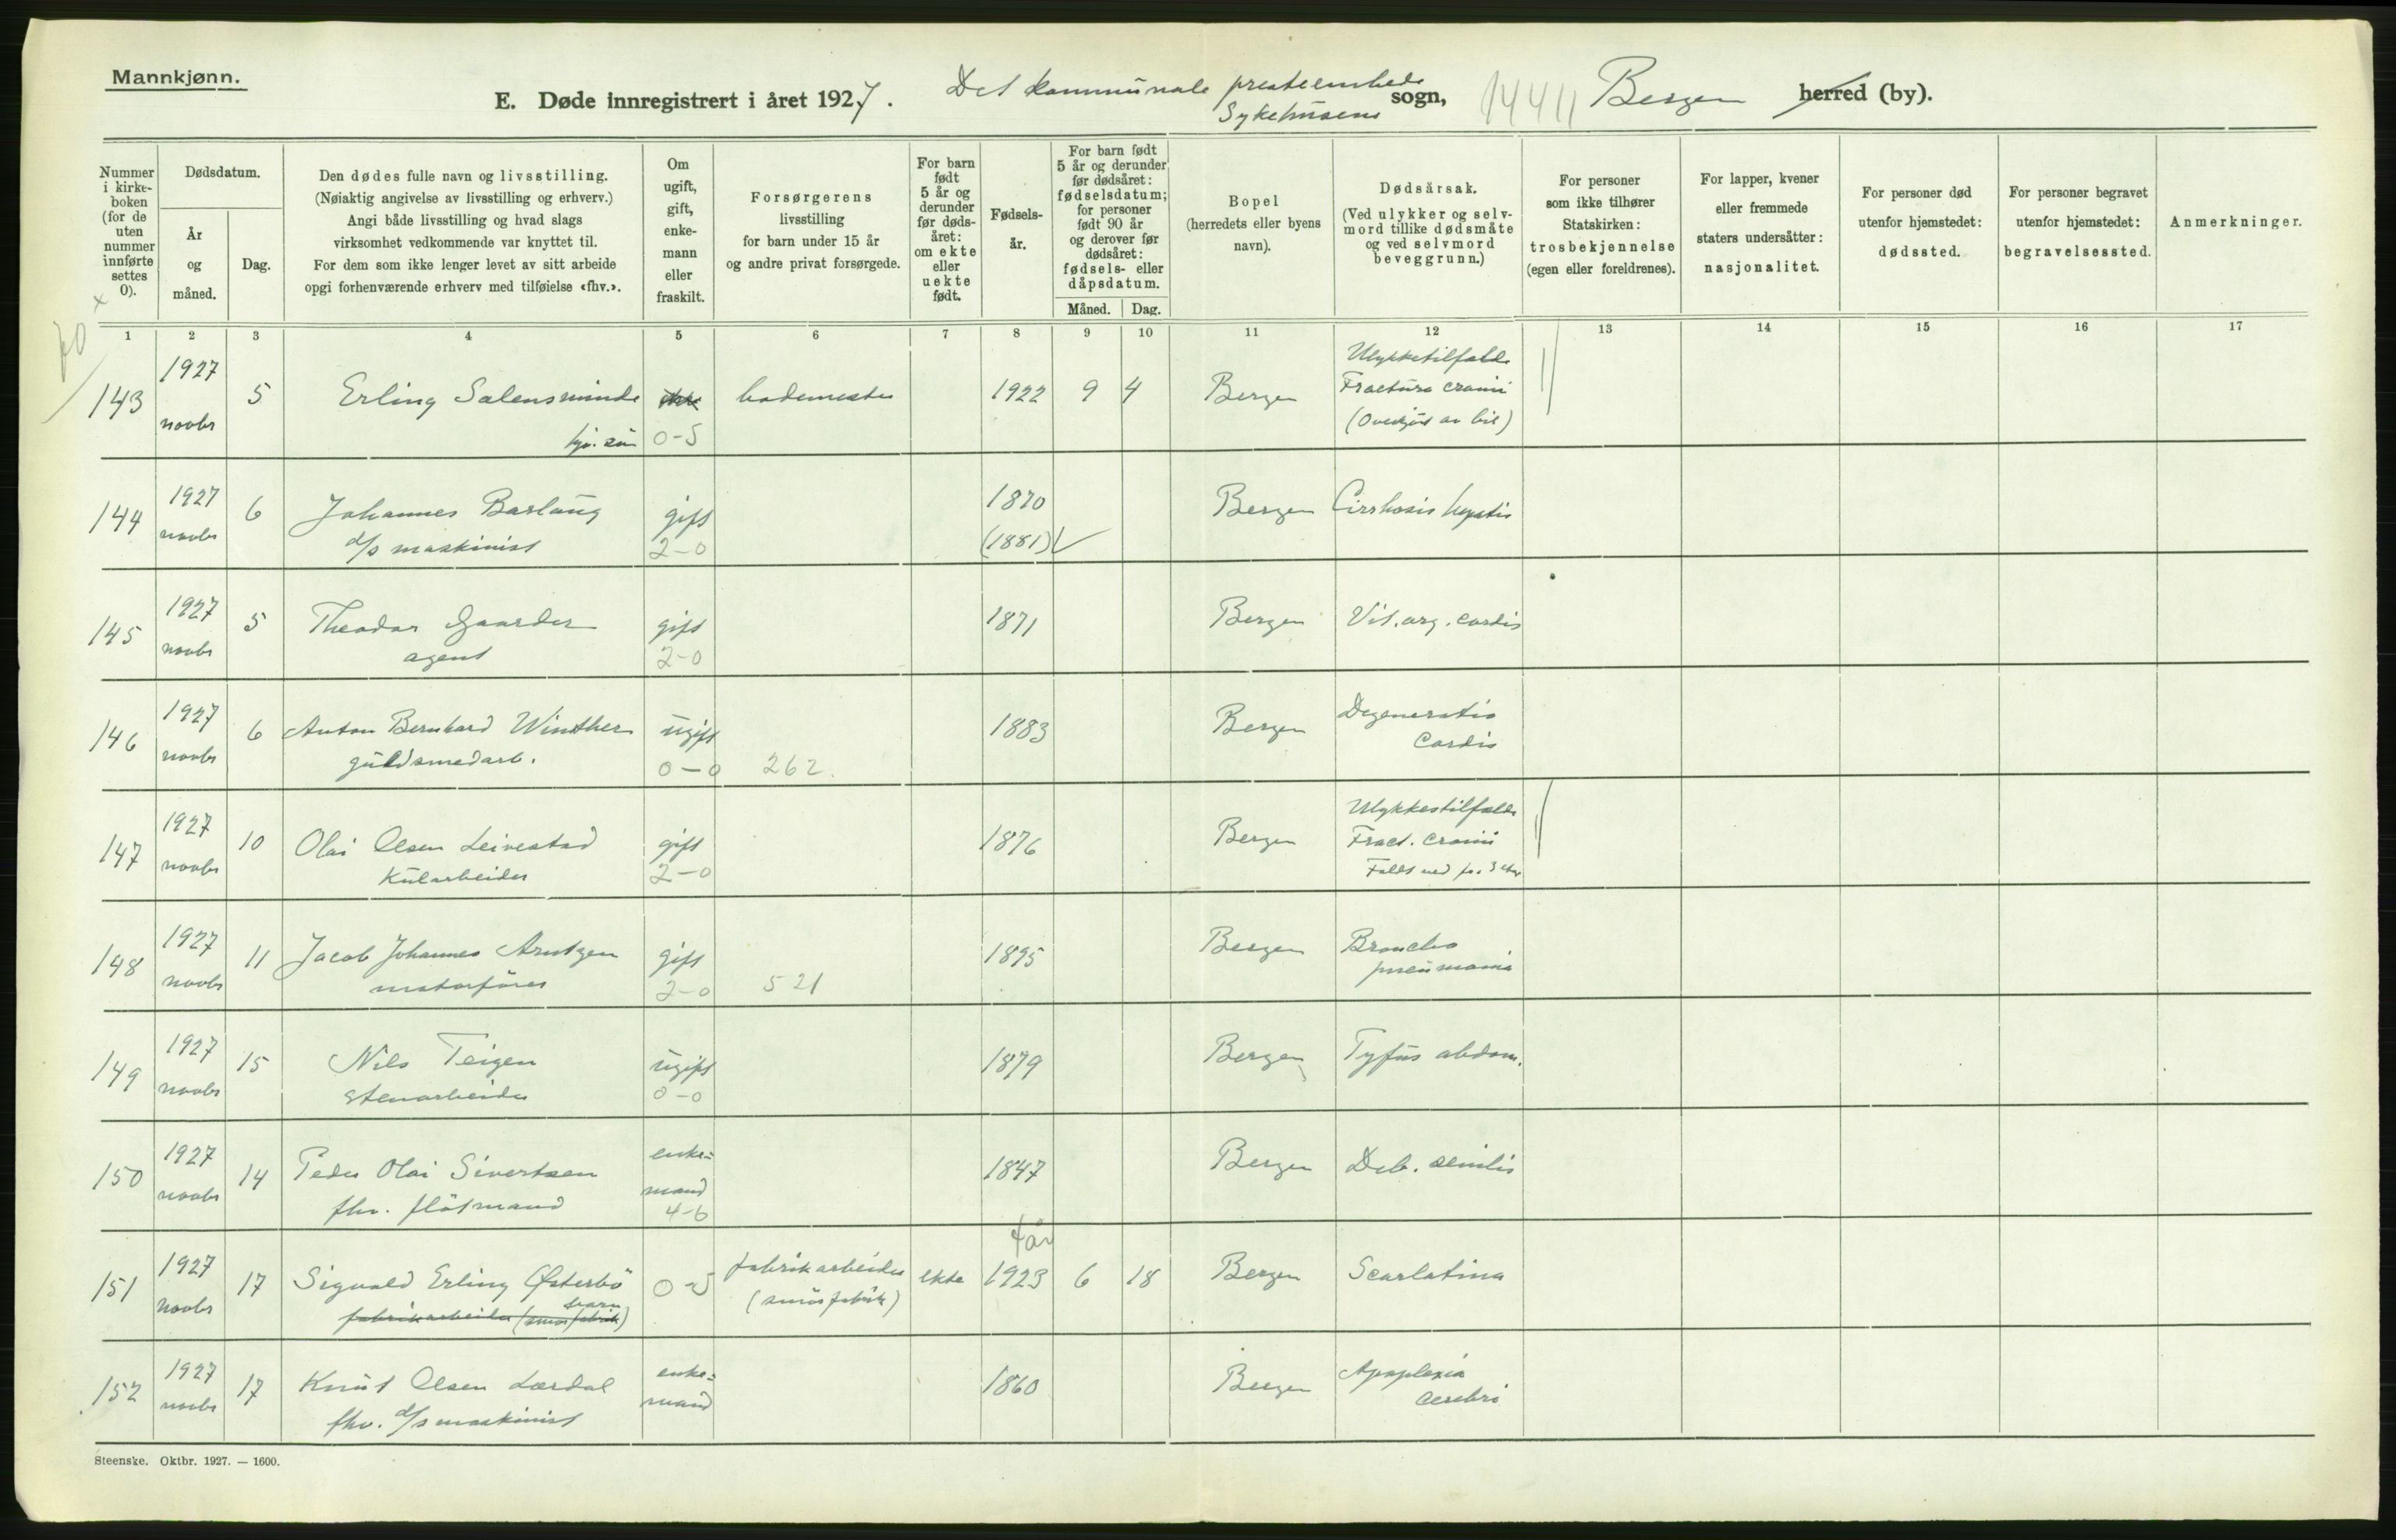 Mannkjønn.
E. Døde innregistrert i året 1927. Det kommunale presteembede Sykehusene sogn, 14411 Bergen herred (by).
Nummer i kirke-boken (for de uten nummer innførte settes 0).
Dødsdatum.
År og måned.
Dag.
Den dødes fulle navn og livsstilling.
(Nøiaktig angivelse av livsstilling og erhverv.)
Angi både livsstilling og hvad slags
virksomhet vedkommende var knyttet til.
For dem som ikke lenger levet av sitt arbeide
opgi forhenværende erhverv med tilføielse «fhv.».
Om ugift, gift, enke-mann eller fraskilt.
Forsørgerens
livsstilling
for barn under 15 år
og andre privat forsørgede.
For barn født 5 år og derunder før døds-året: om ekte eller uekte født.
Fødsels-år.
For barn født 5 år og derunder før dødsåret: fødselsdatum; for personer født 90 år og derover før dødsåret: fødsels- eller dåpsdatum.
Måned. Dag.
Bopel
(herredets eller byens
navn).
Dødsårsak.
(Ved ulykker og selv-
mord tillike dødsmåte
og ved selvmord
beveggrunn.)
For personer
som ikke tilhører
Statskirken:
trosbekjennelse
(egen eller foreldrenes).
For lapper, kvener
eller fremmede
staters undersåtter:
nasjonalitet.
For personer død
utenfor hjemstedet:
dødssted.
For personer begravet
utenfor hjemstedet:
begravelsessted.
Anmerkninger.
1 2 3 4 5 6 7 8 9 10 11 12 13 14 15 16 17
143 1927 novbr 5 Erling Salensminde 0-5 bademester 1922 9 4 Bergen Ulykkestilfælde
Fractura cranii
(Overkjørt av bil)
144 1927 novbr 6 Johannes Barlaug gift 1870 Bergen Cirrhosis hepatis
d/s maskinist 2-0 (1881)
145 1927 novbr 5 Theodor Gaarder gift 1871 Bergen Vit. org. cordis
agent 2-0
146 1927 novbr 6 Anton Bernhard Winther ugift 1883 Bergen Degeneratio
guldsmedarb. 0-0 262. Cordis
147 1927 novbr 10 Olai Olsen Leivestad gift 1876 Bergen Ulykkestilfælde
Kularbeider 2-0 Fract. cranii
Faldt ned fra 3 etg
148 1927 novbr 11 Jacob Johannes Arntzen gift 1895 Bergen Broncho
motorfører 2-0 521 pneumonia
149 1927 novbr 15 Nils Teigen ugift 1879 Bergen Tyfus abdom.
Stenarbeider 0-0
150 1927 novbr 14 Peder Olai Sivertsen enke= 1847 Bergen Deb. senilis
fhv. fløtmand mand
4-6
4 år
151 1927 novbr 17 Sigvald Erling Østerbø 0-5 fabrikarbeider ekte 1923 6 18 Bergen Scarlatina
fabrikarbeider (smørfabrik) barn (smørfabrik)
152 1927 novbr 17 Knut Olsen Lærdal enke= 1860 Bergen Apoplexia
fhv. d/s maskinist mand cerebri
Steenske. Oktbr. 1927. — 1600.